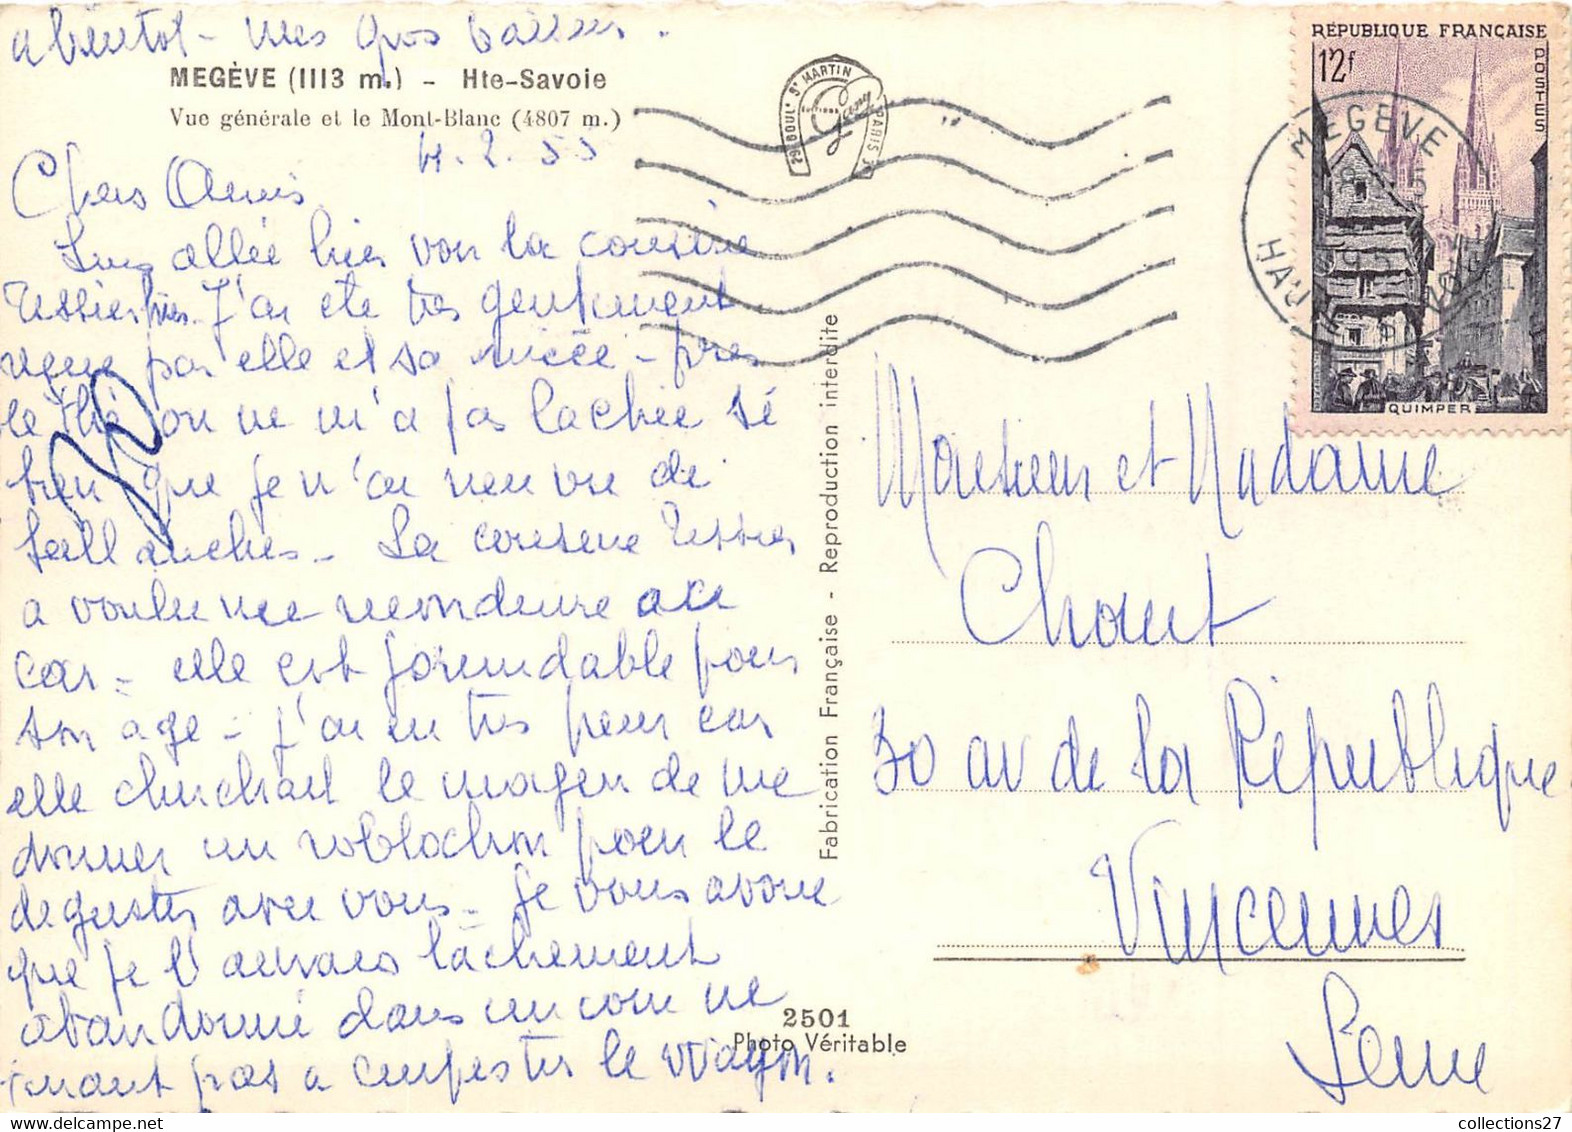 a bientot - mes gros baisers.
MEGÈVE (1113 m.) - Hte-Savoie
Vue générale et le Mont-Blanc (4807 m.)
4. 2. 55
Chers Amis
Suis allée hier voir la cousine
Tessier J'ai été très gentiment
reçue par elle et sa nièce - près
le thé on ne m'a pas lachée si
bien que je n'ai rien vu de
Sallanches - La cousine Tessier
a voulu me reconduire au
car - elle est formidable pour
son age - j'ai eu très peur car
elle cherchait le moyen de me
donner un roblochon pour le
deguster avec vous - je vous avoue
que je l'aurais lâchement
abandonné dans un coin ne
tenant pas a empester le wagon.
20
29 BOUL^D S^T MARTIN
EDITIONS
Gany
PARIS 3e
Fabrication Française - Reproduction interdite
2501
Photo Véritable
RÉPUBLIQUE FRANÇAISE
12f
POSTES
QUIMPER
MEGÈVE
1955
Monsieur et Madame
Chaut
30 av de la République
Vincennes
Seine
collections27